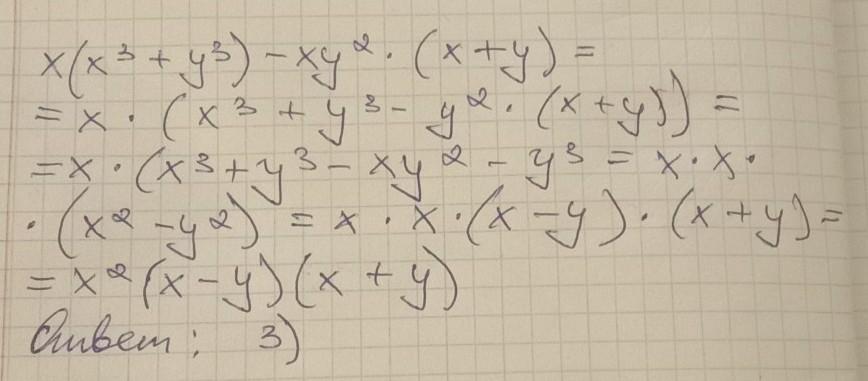 x(x³ + y³) − xy² · (x + y) =
= x · (x³ + y³ − y² · (x + y)) =
= x · (x³ + y³ − xy² − y³ = x · x ·
· (x² − y²) = x · x · (x − y) · (x + y) =
= x² (x − y)(x + y)
Ответ: 3)